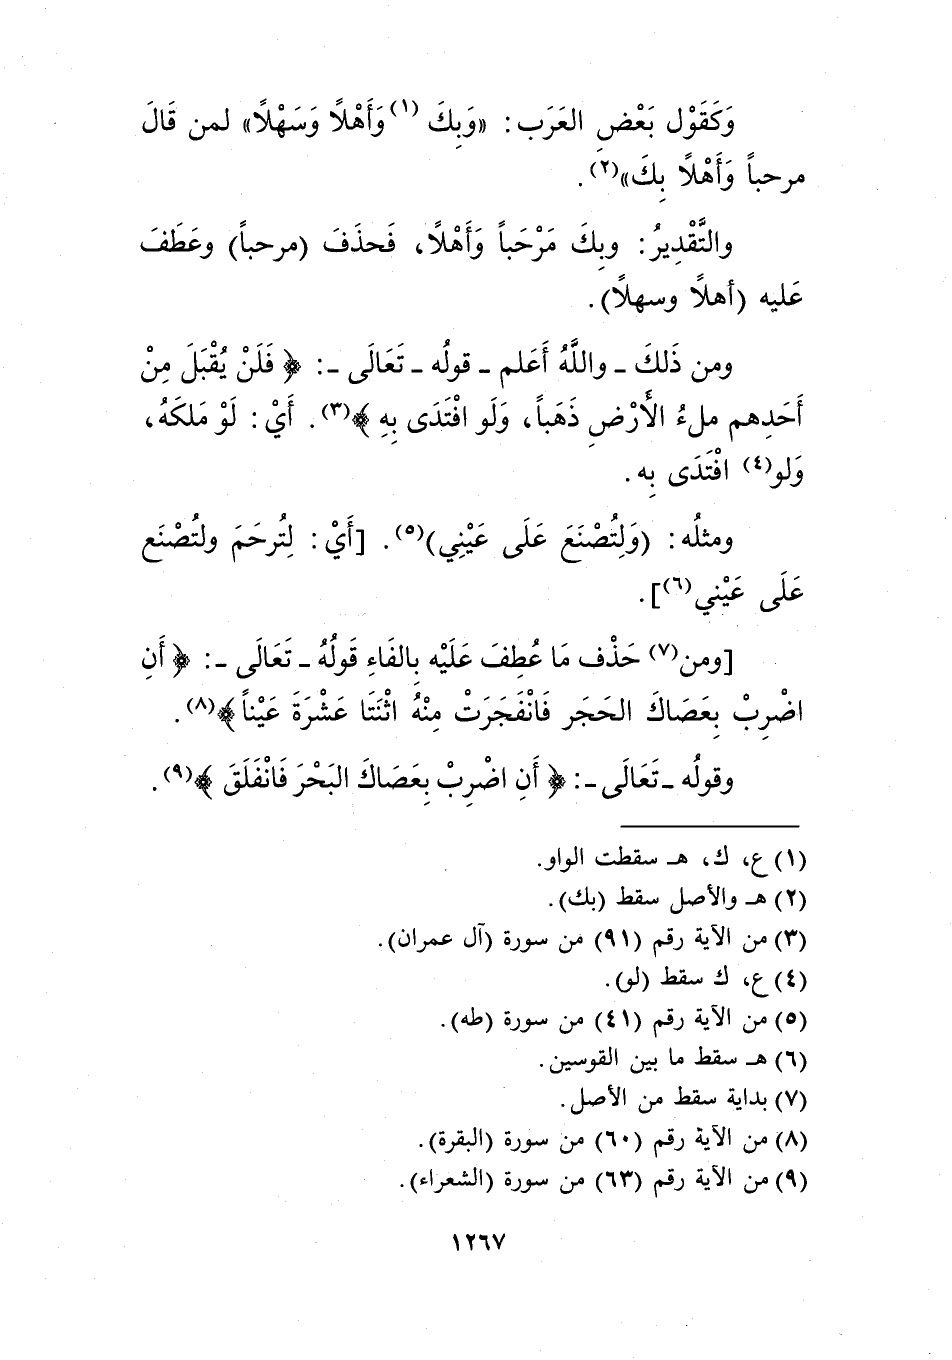 وَكَقَوْل بَعْضِ العَرَب: «وَبِكَ (١) وَأَهْلًا وَسَهْلًا» لمن قَالَ
مرحباً وَأَهْلًا بِكَ»(٢).
والتَّقْدِيرُ: وبِكَ مَرْحَباً وَأَهْلًا، فَحذَفَ (مرحباً) وعَطَفَ
عَليه (أهلًا وسهلًا).
ومن ذَلكَ ـ واللَّهُ أَعَلم ـ قولُه ـ تَعَالَى ـ: ﴿ فَلَنْ يُقْبَلَ مِنْ
أَحَدِهم ملءُ الأَرْضِ ذَهَباً، وَلَو افْتَدَى بِهِ ﴾(٣). أَيْ: لَوْ مَلكَهُ،
وَلو(٤) افْتَدَى بِه.
ومثلُه: (وَلِتُصْنَعَ عَلَى عَيْنِي)(٥). [أَيْ: لِتُرحَمَ ولتُصْنَع
عَلَى عَيْني(٦)].
[ومن(٧) حَذْف مَا عُطِفَ عَلَيْه بِالفَاءِ قَولُهُ ـ تَعَالَى ـ: ﴿ أَنِ
اضْرِبْ بِعَصَاكَ الحَجَر فَانْفَجَرَتْ مِنْهُ اثْنَتَا عَشْرَةَ عَيْناً ﴾(٨).
وقولُه ـ تَعَالَى ـ: ﴿ أَنِ اضْرِبْ بِعَصَاكَ البَحْرَ فَانْفَلَقَ ﴾(٩).
(١) ع، ك، هـ سقطت الواو.
(٢) هـ والأصل سقط (بك).
(٣) من الآية رقم (٩١) من سورة (آل عمران).
(٤) ع، ك سقط (لو).
(٥) من الآية رقم (٤١) من سورة (طه).
(٦) هـ سقط ما بين القوسين.
(٧) بداية سقط من الأصل.
(٨) من الآية رقم (٦٠) من سورة (البقرة).
(٩) من الآية رقم (٦٣) من سورة (الشعراء).
١٢٦٧